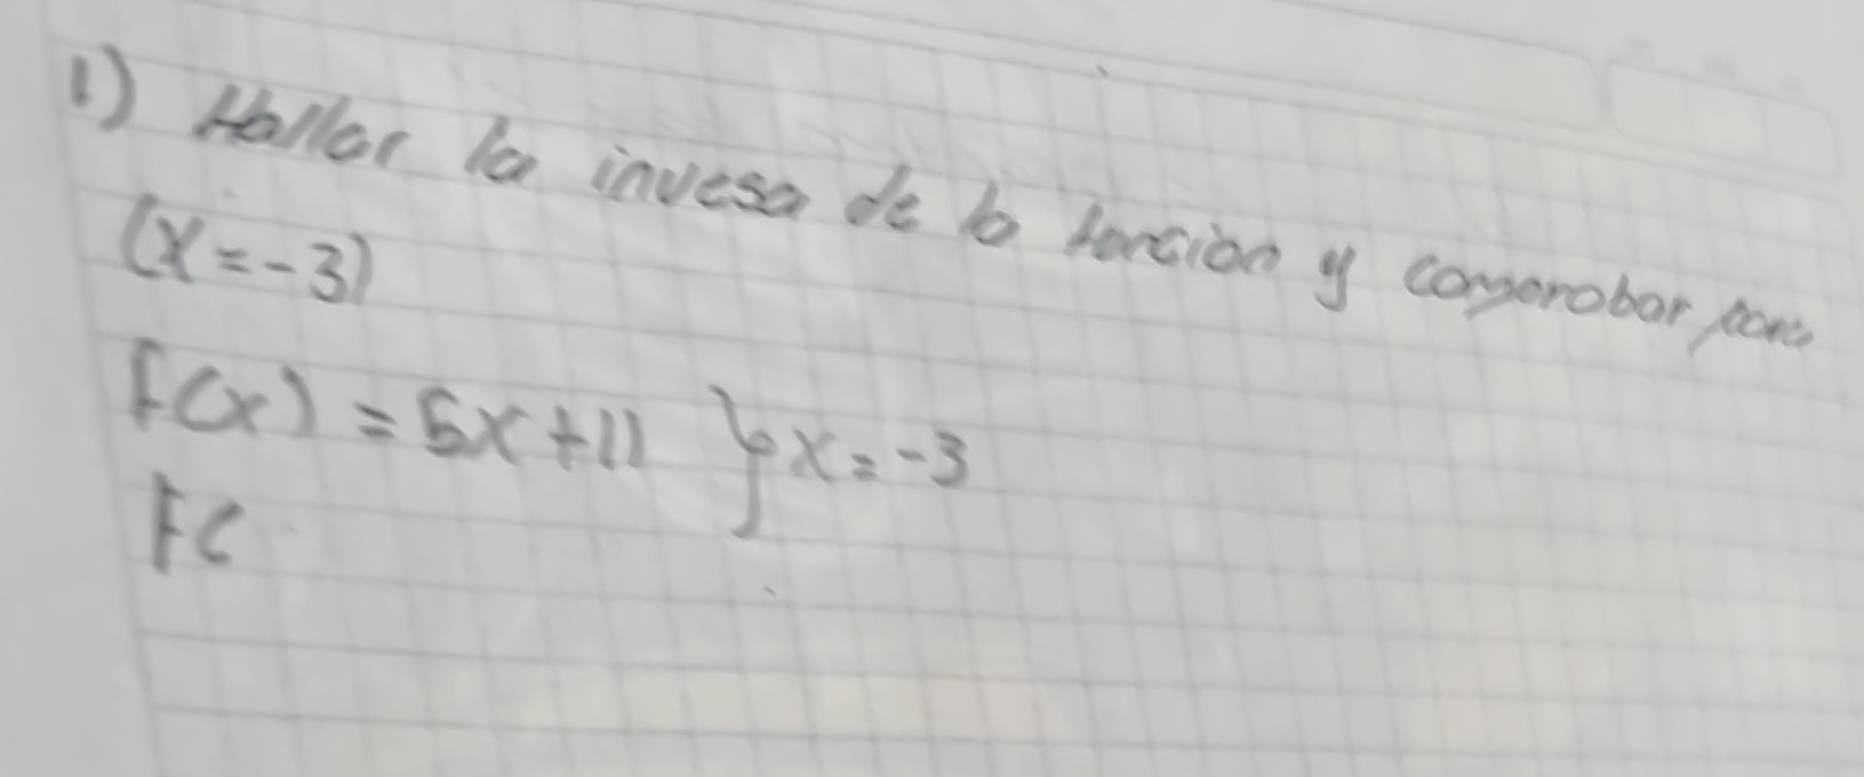 1) Hallar la invesa de la función y comprobar para
(x = -3)
F(x) = 5x + 11 } x = -3
F(